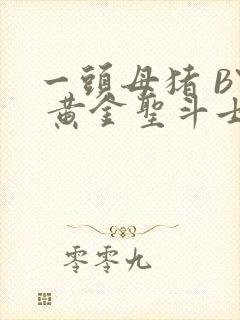 一頭母猪 BY
黄金聖斗士
零零九